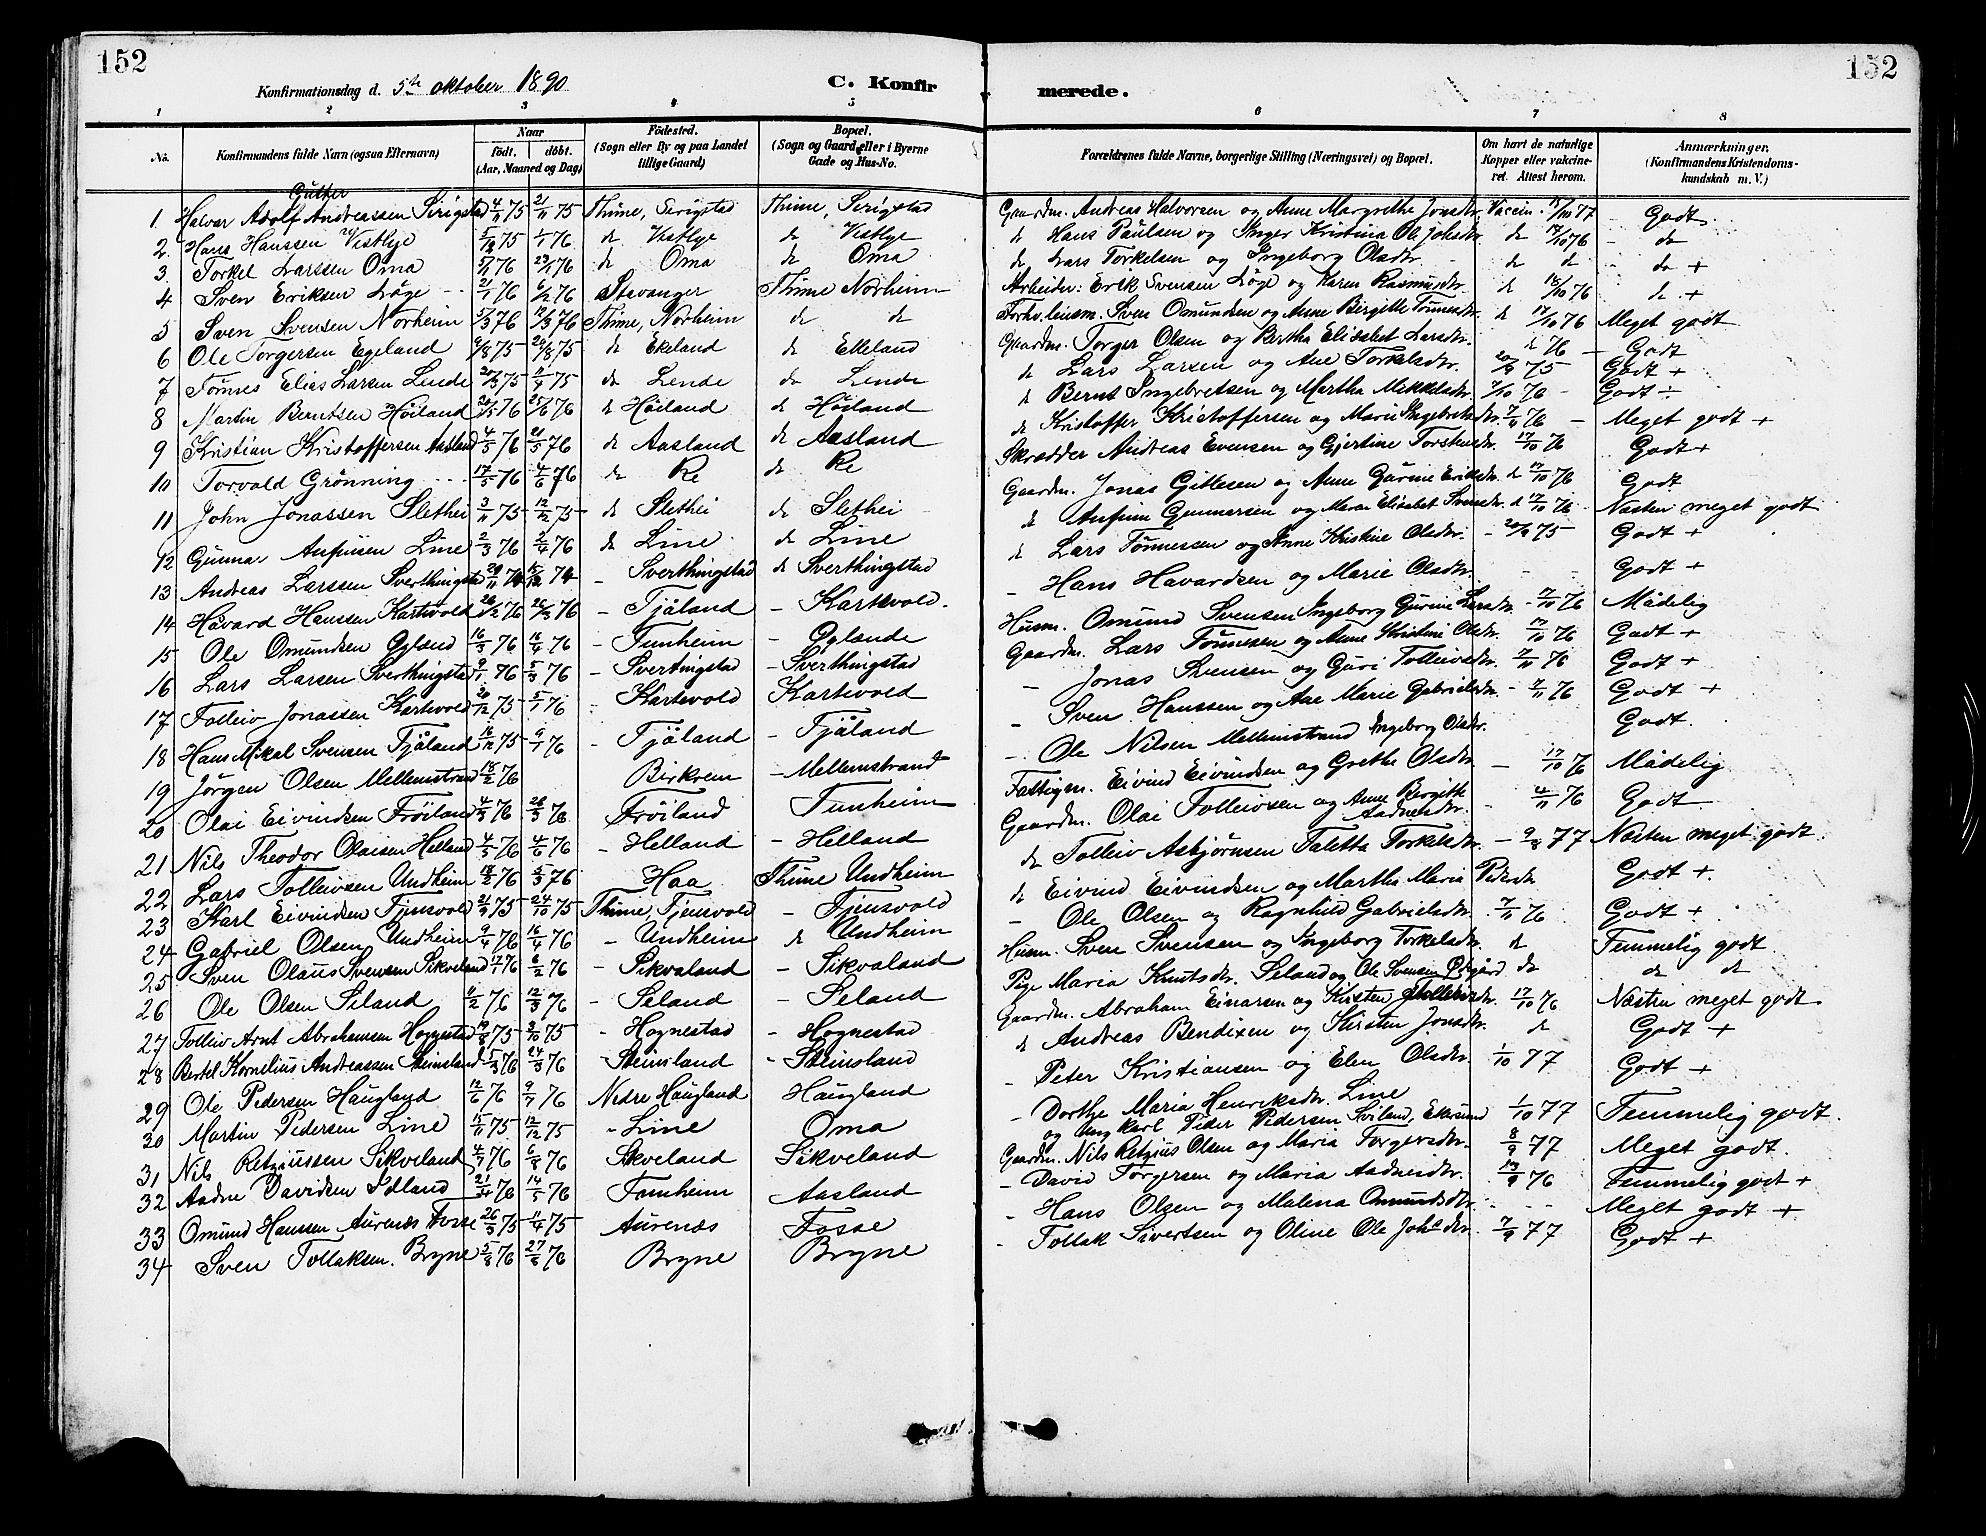 152
Konfirmationsdag d. 5te oktober 1890
C. Konfirmerede.
152
1 2 3 4 5 6 7 8
No. | Konfirmandens fulde Navn (ogsaa Efternavn) | Naar födt. döbt. (Aar, Maaned og Dag) | Födested. (Sogn eller By og paa Landet tillige Gaard) | Bopæl. (Sogn og Gaard eller i Byerne Gade og Hus-No. | Forældrenes fulde Navne, borgerlige Stilling (Næringsvei) og Bopæl. | Om havt de naturlige Kopper eller vakcineret. Attest herom. | Anmærkninger. (Konfirmandens Kristendomskundskab m. V.)
Gutter
1 Halvar Adolf Andreassen Serigstad 4/11 75 21/11 75 Thime, Serigstad Thime, Serigstad Gaardm. Andreas Halvorsen og Anne Margrethe Jonsdtr. Vaccin. 77 Godt
2 Hans Hanssen Vestlye 75 1/1 76 do Vestlye do Vestlye do Hans Paulsen og Inger Kristina Ole Johsdtr. do 17/10 76 do
3 Torkel Larssen Oma 76 23/1 76 do Oma do Oma do Lars Torkelsen og Ingeborg Olsdtr. do do do +
4 Sven Eriksen Löge 21/1 76 6/2 76 Stavanger Thime Norheim Arbeider: Erik Svensen Löge og Karen Rasmusdtr. do 18/10 76 do +
5 Sven Svensen Norheim 76 12/3 76 Thime, Norheim do do Forhv. lensm. Sven Omundsen og Anne Bergitte Tönnesdtr. do 17/10 76 Meget godt
6 Ole Torgersen Egeland 75 75 do Ekeland do Ekeland Gaardm. Torger Olsen og Bertha Elisabet Larsdtr. do 76 Godt
7 Tönnes Elias Larsen Lende 75 11/4 75 do Lende do Lende do Lars Larsen og Ane Torkelsdtr. 75 Godt +
8 Martin Berntsen Höiland 76 25/6 76 do Höiland do Höiland do Bernt Ingebretsen og Martha Mikkelsdtr. 7/10 76 Godt +
9 Kristian Kristoffersen Aasland 4/5 76 21/5 76 do Aasland do Aasland do Kristoffer Kristoffersen og Marie Ingebretsdtr. 7/11 76 Meget godt +
10 Torvald Grönning 17/5 76 4/6 76 do Re do Re Skrædder Andreas Evensen og Gjertine Torstensdtr. 17/10 76 Godt +
11 John Jonassen Slethei 3/11 75 12/12 75 do Slethei do Slethei Gaardm. Jonas Gitlesen og Anne Gurine Eriksdtr. do 17/10 76 Godt
12 Gunnar Anfinsen Line 2/3 76 2/4 76 do Line do Line do Anfinn Gunnarsen og Maren Elisabet Svensdtr. do 17/10 76 Næsten meget godt
13 Andreas Larssen Sverthingstad 29/11 74 74 - Sverthingstad do Sverthingstad do Lars Tönnessen og Anne Kristine Olsdtr. 75 Godt +
14 Håvard Hanssen Kartevold 76 76 - Tjåland - Kartevold. - Hans Havardsen og Marie Olsdtr. - - Godt +
15 Ole Omundsen Öglænd 16/3 76 16/4 76 - Tunheim - Öglænde Husm. Omund Svensen Ingeborg Gurine Larsdtr. - 17/10 76 Mådelig
16 Lars Larsen Sverthingstad 9/1 76 5/3 76 - Svertingstad - Sverthingstad Gaardm. Lars Tönnesen og Anne Kristine Olsdtr. 17/10 76 Godt +
17 Folleiv Jonassen Kartevold 75 5/1 76 - Kartevold Kartevold - Jonas Svensen og Guri Tolleivsdtr. 7/11 76 Godt +
18 Hans Mikal Svensen Tjåland 75 9/1 76 - Tjåland - Tjåland - Sven Hanssen og Ane Marie Gabrielsdtr. - 7/11 76 Godt +
19 Jörgen Olsen Mellemstrand 18/2 76 Birkrem - Mellemstrand - Ole Nilsen Mellemstrand Ingeborg Olsdtr. Godt.
20 Olai Eivindsen Fröiland 76 26/3 76 Fröiland Tunheim Fattigm. Eivind Eivindsen og Grethe Olsdtr. - 17/10 76 Mådelig
21 Nils Theodor Olaisen Helland 4/5 76 4/6 76 - Helland - Helland Gaardm. Olai Tolleivsen og Anne Bergitte Aadnesdtr. - 4/11 76 Godt
22 Lars Tolleivsen Undheim 76 5/3 76 Haa Thime Undheim do Tolleiv Asbjörnsen Taletta Torkelsdtr. - 77 Næsten meget godt
23 Karl Eivindsen Tjensvold 21/9 75 24/10 75 Thime, Tjensvold - Tjensvold do Eivind Eivindsen og Martha Maria Pedersdtr. Godt +
24 Gabriel Olsen Undheim 9/4 76 16/4 76 - Undheim do Undheim - Ole Olsen og Ragnhild Gabrielsdtr. 7/11 76 Godt +
25 Sven Olaus Svensen Sikveland 76 6/2 76 - Sikvaland - Sikvaland Husm. Sven Svensen og Ingeborg Torkelsdtr. do Temmelig godt
26 Ole Olsen Seland 11/2 76 12/3 76 - Seland - Seland Pige Maria Knutsdtr. Seland og Ole Svensen do do do
27 Tolleiv Arnt Abrahamsen Hognestad 19/8 75 3/10 75 - Hognestad - Hognestad Gaardm. Abraham Einarsen og Kristen Tolleivsdtr. 17/10 76 Næsten meget godt
28 Bertel Kornelius Andreassen Steinsland 5/3 76 24/3 76 - Steinsland - Steinsland do Andreas Bendixen og Kirsten Jonsdtr. do Godt +
29 Ole Pedersen Haugland 12/6 76 9/7 76 Nedre Haugland Haugland - Peter Kristiansen og Elen Olsdtr. 1/10 77 Godt +
30 Martin Pedersen Line 15/11 75 12/12 75 - Line Oma - Dorthe Maria Henriksdtr. Line og Ung karl Peder Pedersen Sviland, Ekersund 1/10 77 Temmelig godt.
31 Nils Retziussen Sikveland 76 6/8 76 Skveland Sikveland Gaardm. Nils Retzius Olsen og Maria Torgersdtr. 8/9 77 Meget godt.
32 Aadne Davidsen Idland 21/4 76 14/5 76 Tunheim Aasland - David Torgersen og Maria Aadnesdtr. 76 Temmelig godt +
33 Omund Hanssen Aurenæs Fosse 26/3 75 11/4 75 Aurenæs Fosse - Hans Olsen og Malena Omundsdtr. Meget godt +
34 Sven Tollaksen Bryne 76 27/8 76 Bryne Bryne - Tollak Sivertsen og Oline Ole Johsdtr. 7/9 77 Godt +